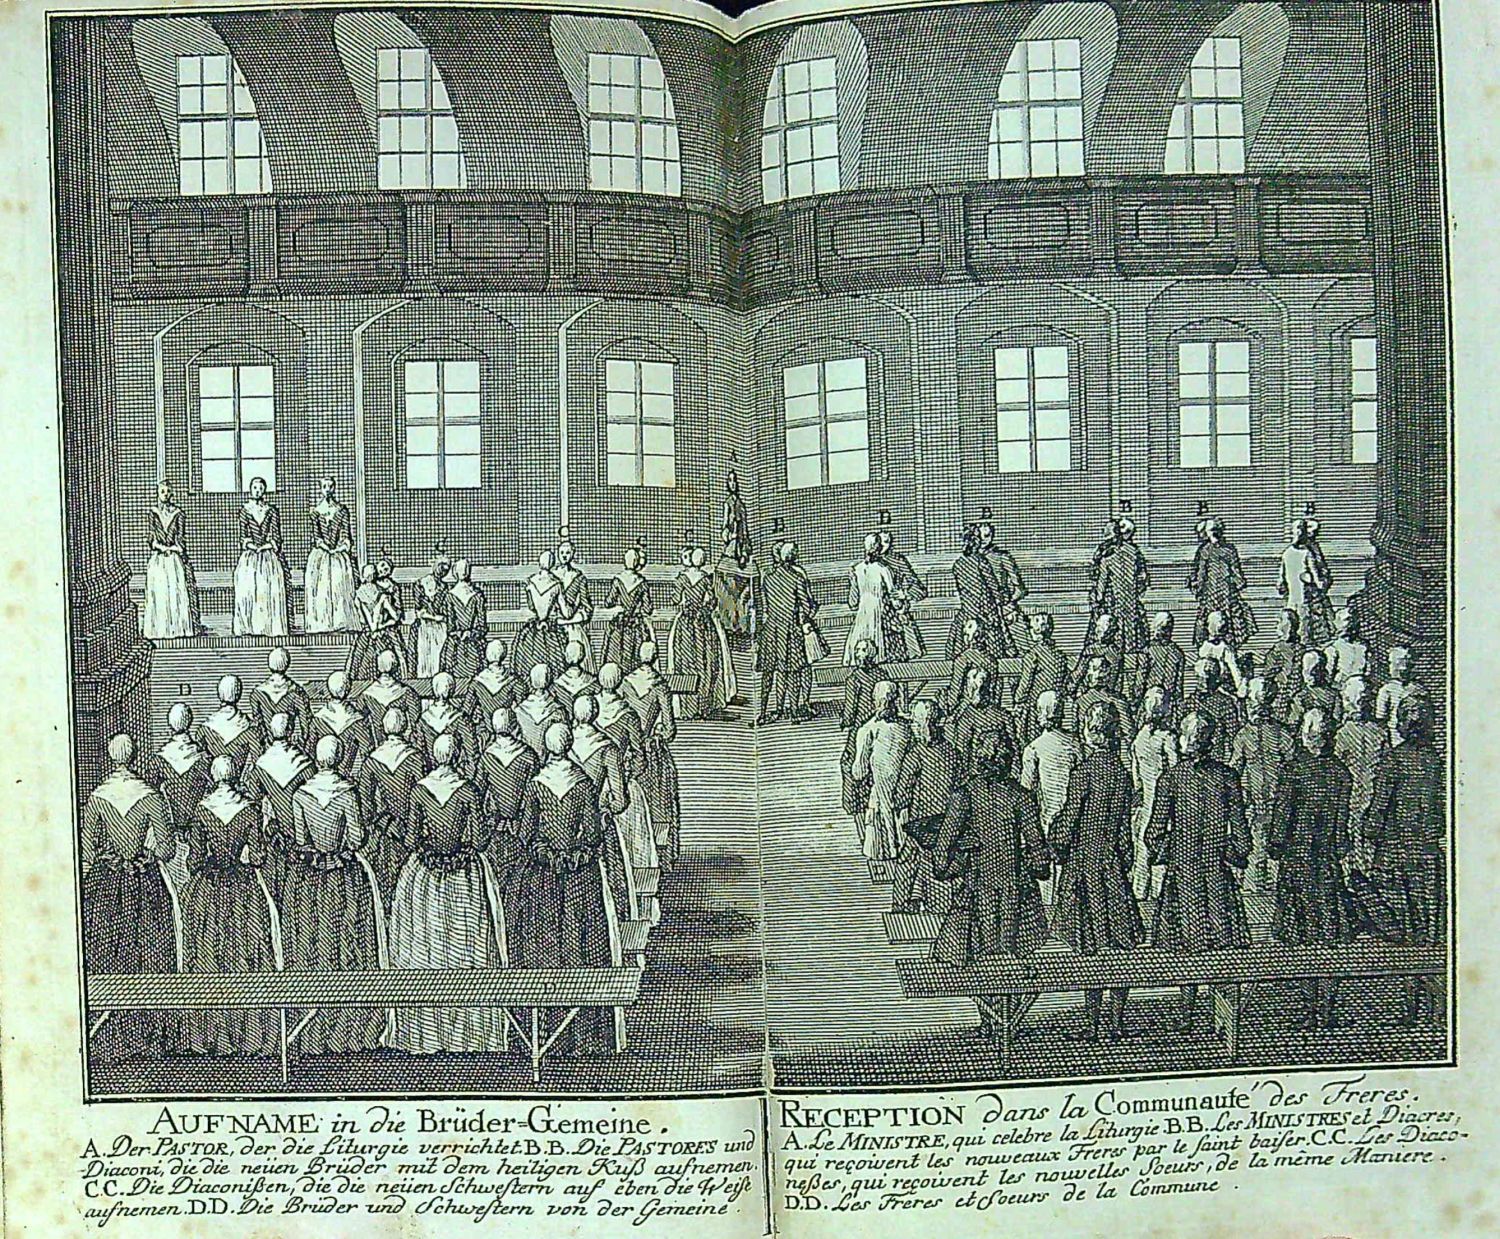 A
B
B
B
B
B
B
C
C
C
C
C
D
D
AUFNAME in die Brüder=Gemeine.
A. Der PASTOR, der die Liturgie verrichtet. B.B. Die PASTORES und
Diaconi, die die neuen Brüder mit dem heiligen Kuß aufnemen.
C.C. Die Diaconißen, die die neüen Schwestern auf eben die Weise
aufnemen. D.D. Die Brüder und Schwestern von der Gemeine.
RECEPTION dans la Communauté des Freres.
A. Le MINISTRE, qui celebre la Liturgie B.B. Les MINISTRES et Diacres,
qui reçoivent les nouveaux Freres par le saint baiser. C.C. Les Diaco-
neßes, qui reçoivent les nouvelles Soeurs, de la même Maniere.
D.D. Les Freres et Soeurs de la Commune.